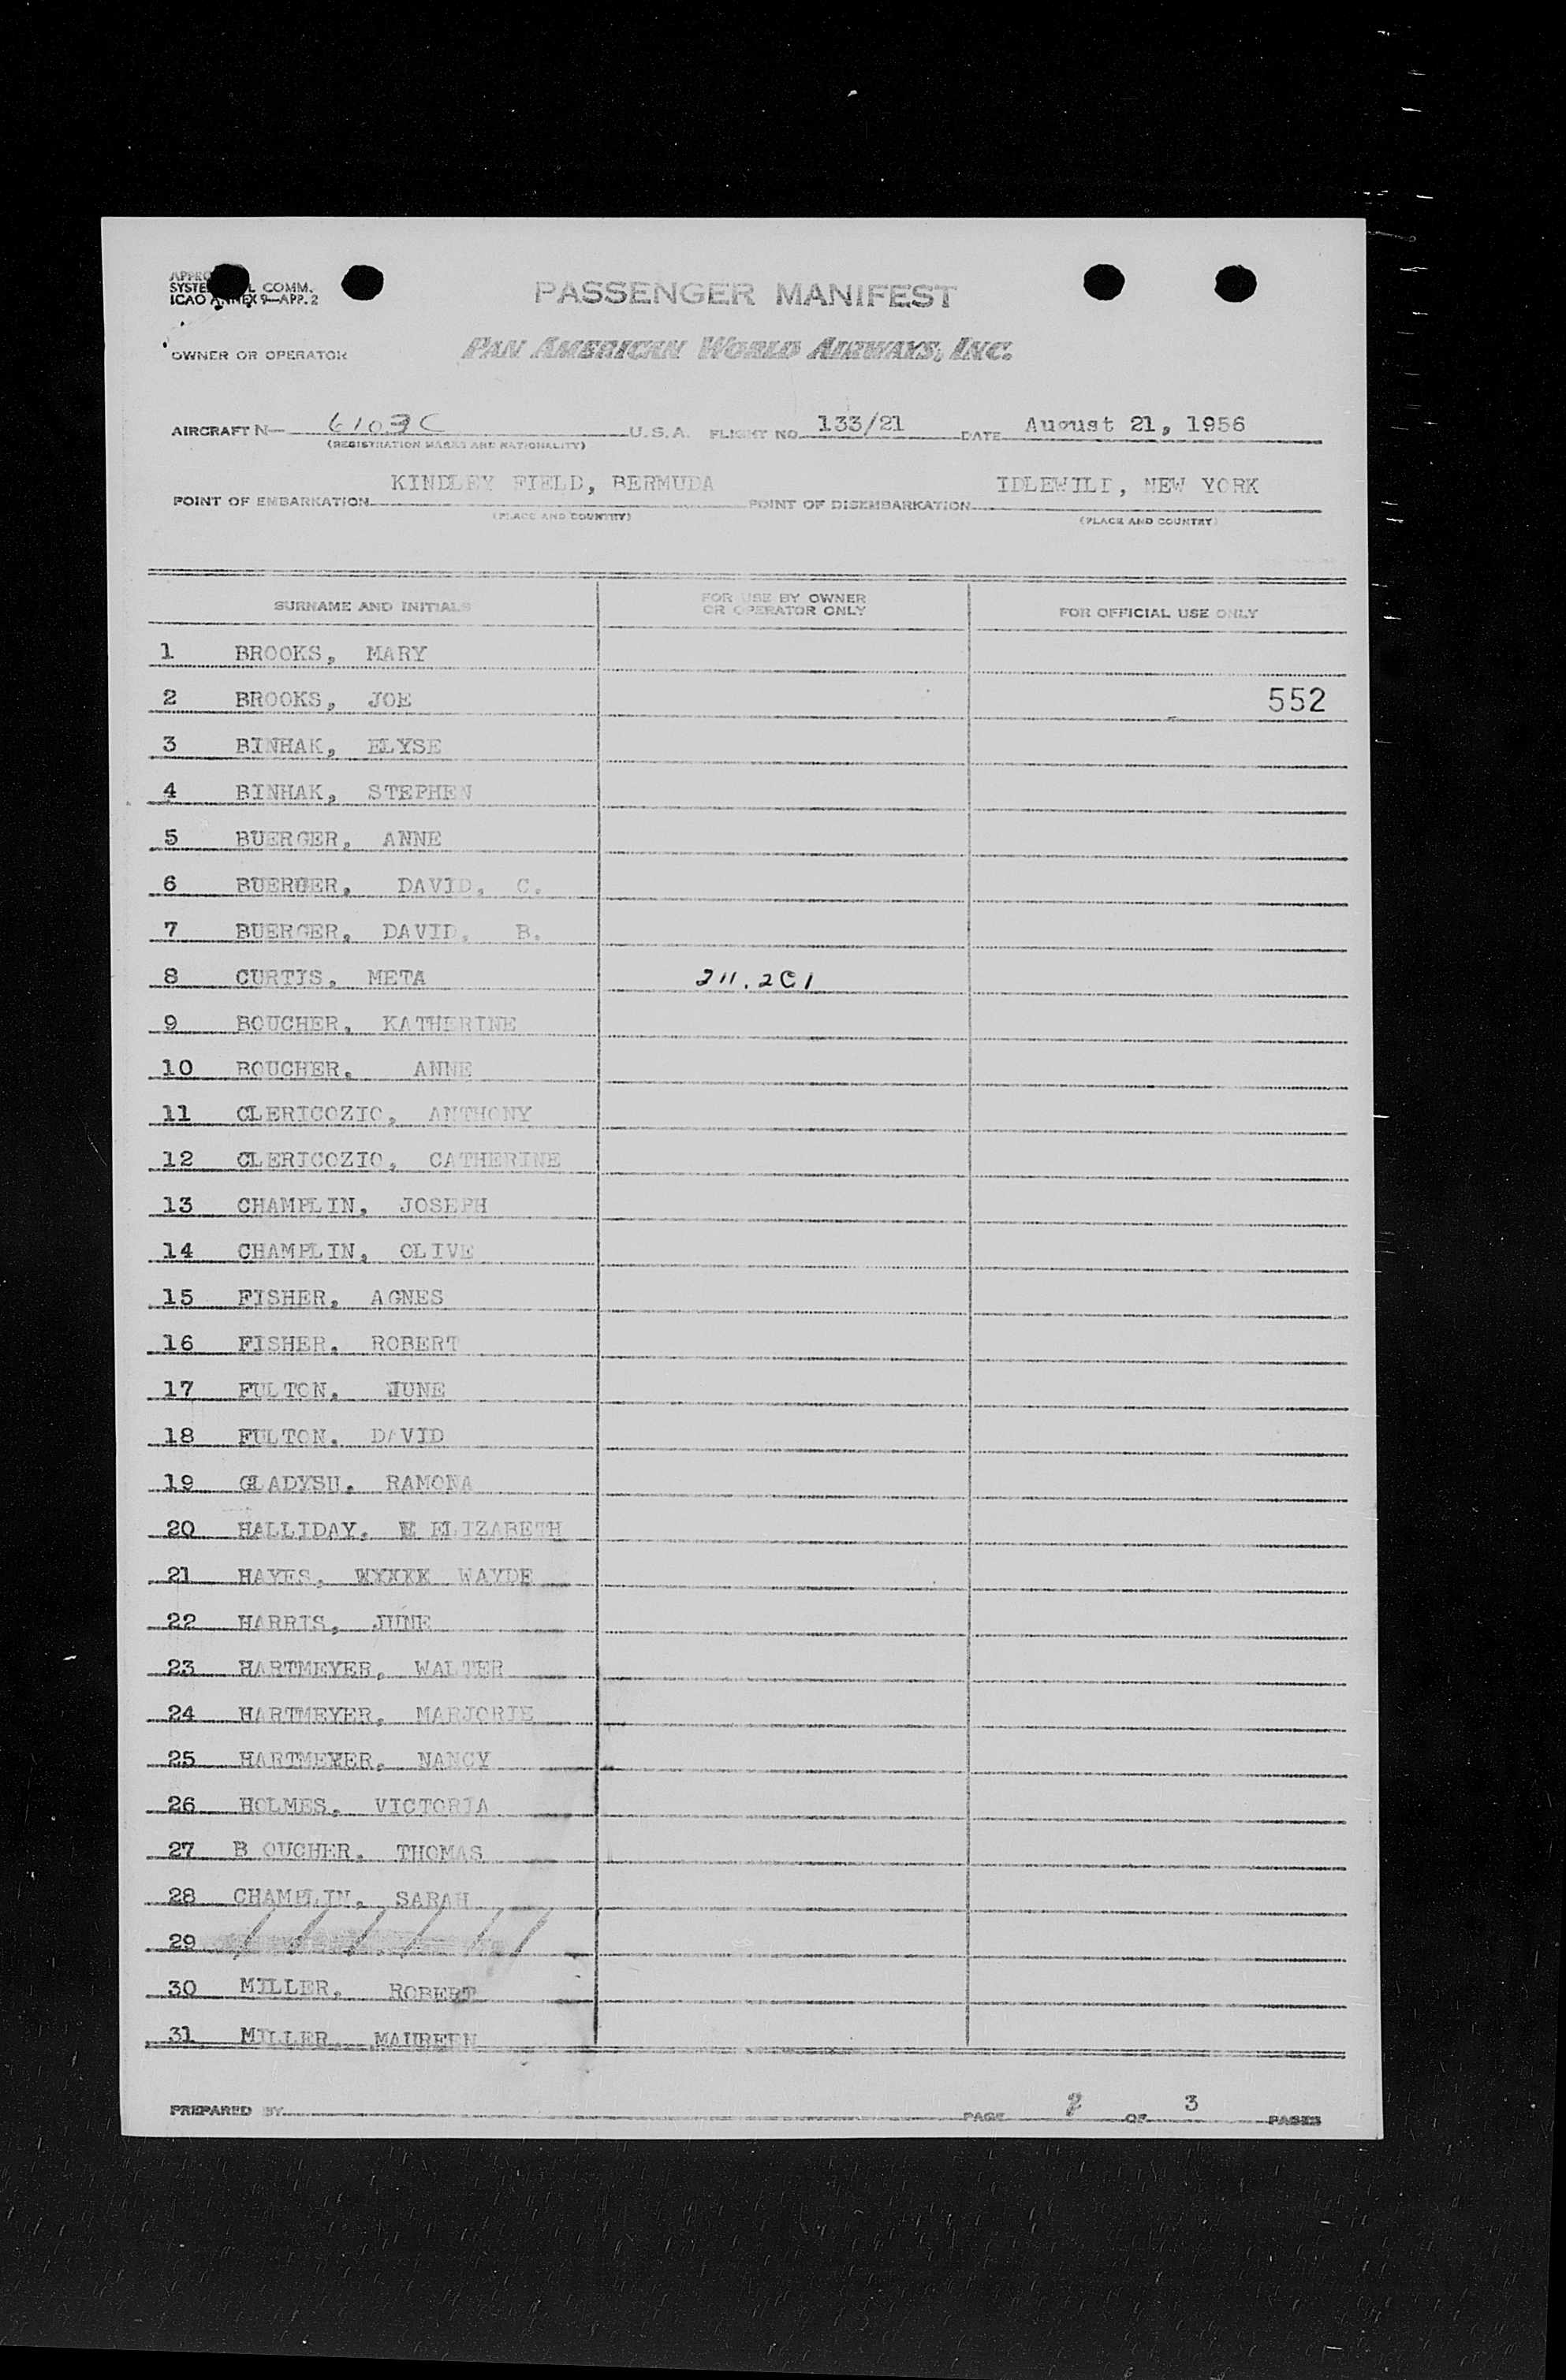 SYSTE L COMM.
ICAO ANNEX 9—APP. 2
PASSENGER MANIFEST
OWNER OR OPERATOR PAN AMERICAN WORLD AIRWAYS, INC.
AIRCRAFT N— U.S.A. FLIGHT NO. 133/21 DATE August 21, 1956
(REGISTRATION MARKS AND NATIONALITY)
POINT OF EMBARKATION KINDLEY FIELD, BERMUDA POINT OF DISEMBARKATION IDLEWILD, NEW YORK
(PLACE AND COUNTRY) (PLACE AND COUNTRY)
SURNAME AND INITIALS FOR USE BY OWNER OR OPERATOR ONLY FOR OFFICIAL USE ONLY
1 BROOKS, MARY
2 BROOKS, JOE 552
3 BINHAK, ELYSE
4 BINHAK, STEPHEN
5 BUERGER, ANNE
6 BUERGER, DAVID, C.
7 BUERGER, DAVID, B.
8 CURTIS, META 211.2C1
9 BOUCHER, KATHERINE
10 BOUCHER, ANNE
11 CLERICOZIO, ANTHONY
12 CLERICOZIO, CATHERINE
13 CHAMPLIN, JOSEPH
14 CHAMPLIN, OLIVE
15 FISHER, AGNES
16 FISHER, ROBERT
17 FULTON, JUNE
18 FULTON, DAVID
19 GLADYSH, RAMONA
20 HALLIDAY, ELIZABETH
21 HAYES, WAYDE
22 HARRIS, JUNE
23 HARTMEYER, WALTER
24 HARTMEYER, MARJORIE
25 HARTMEYER, NANCY
26 HOLMES, VICTORIA
27 B OUCHER, THOMAS
28 CHAMPLIN, SARAH
29
30 MILLER, ROBERT
31 MILLER, MAUREEN
PREPARED BY PAGE 2 OF 3 PAGES